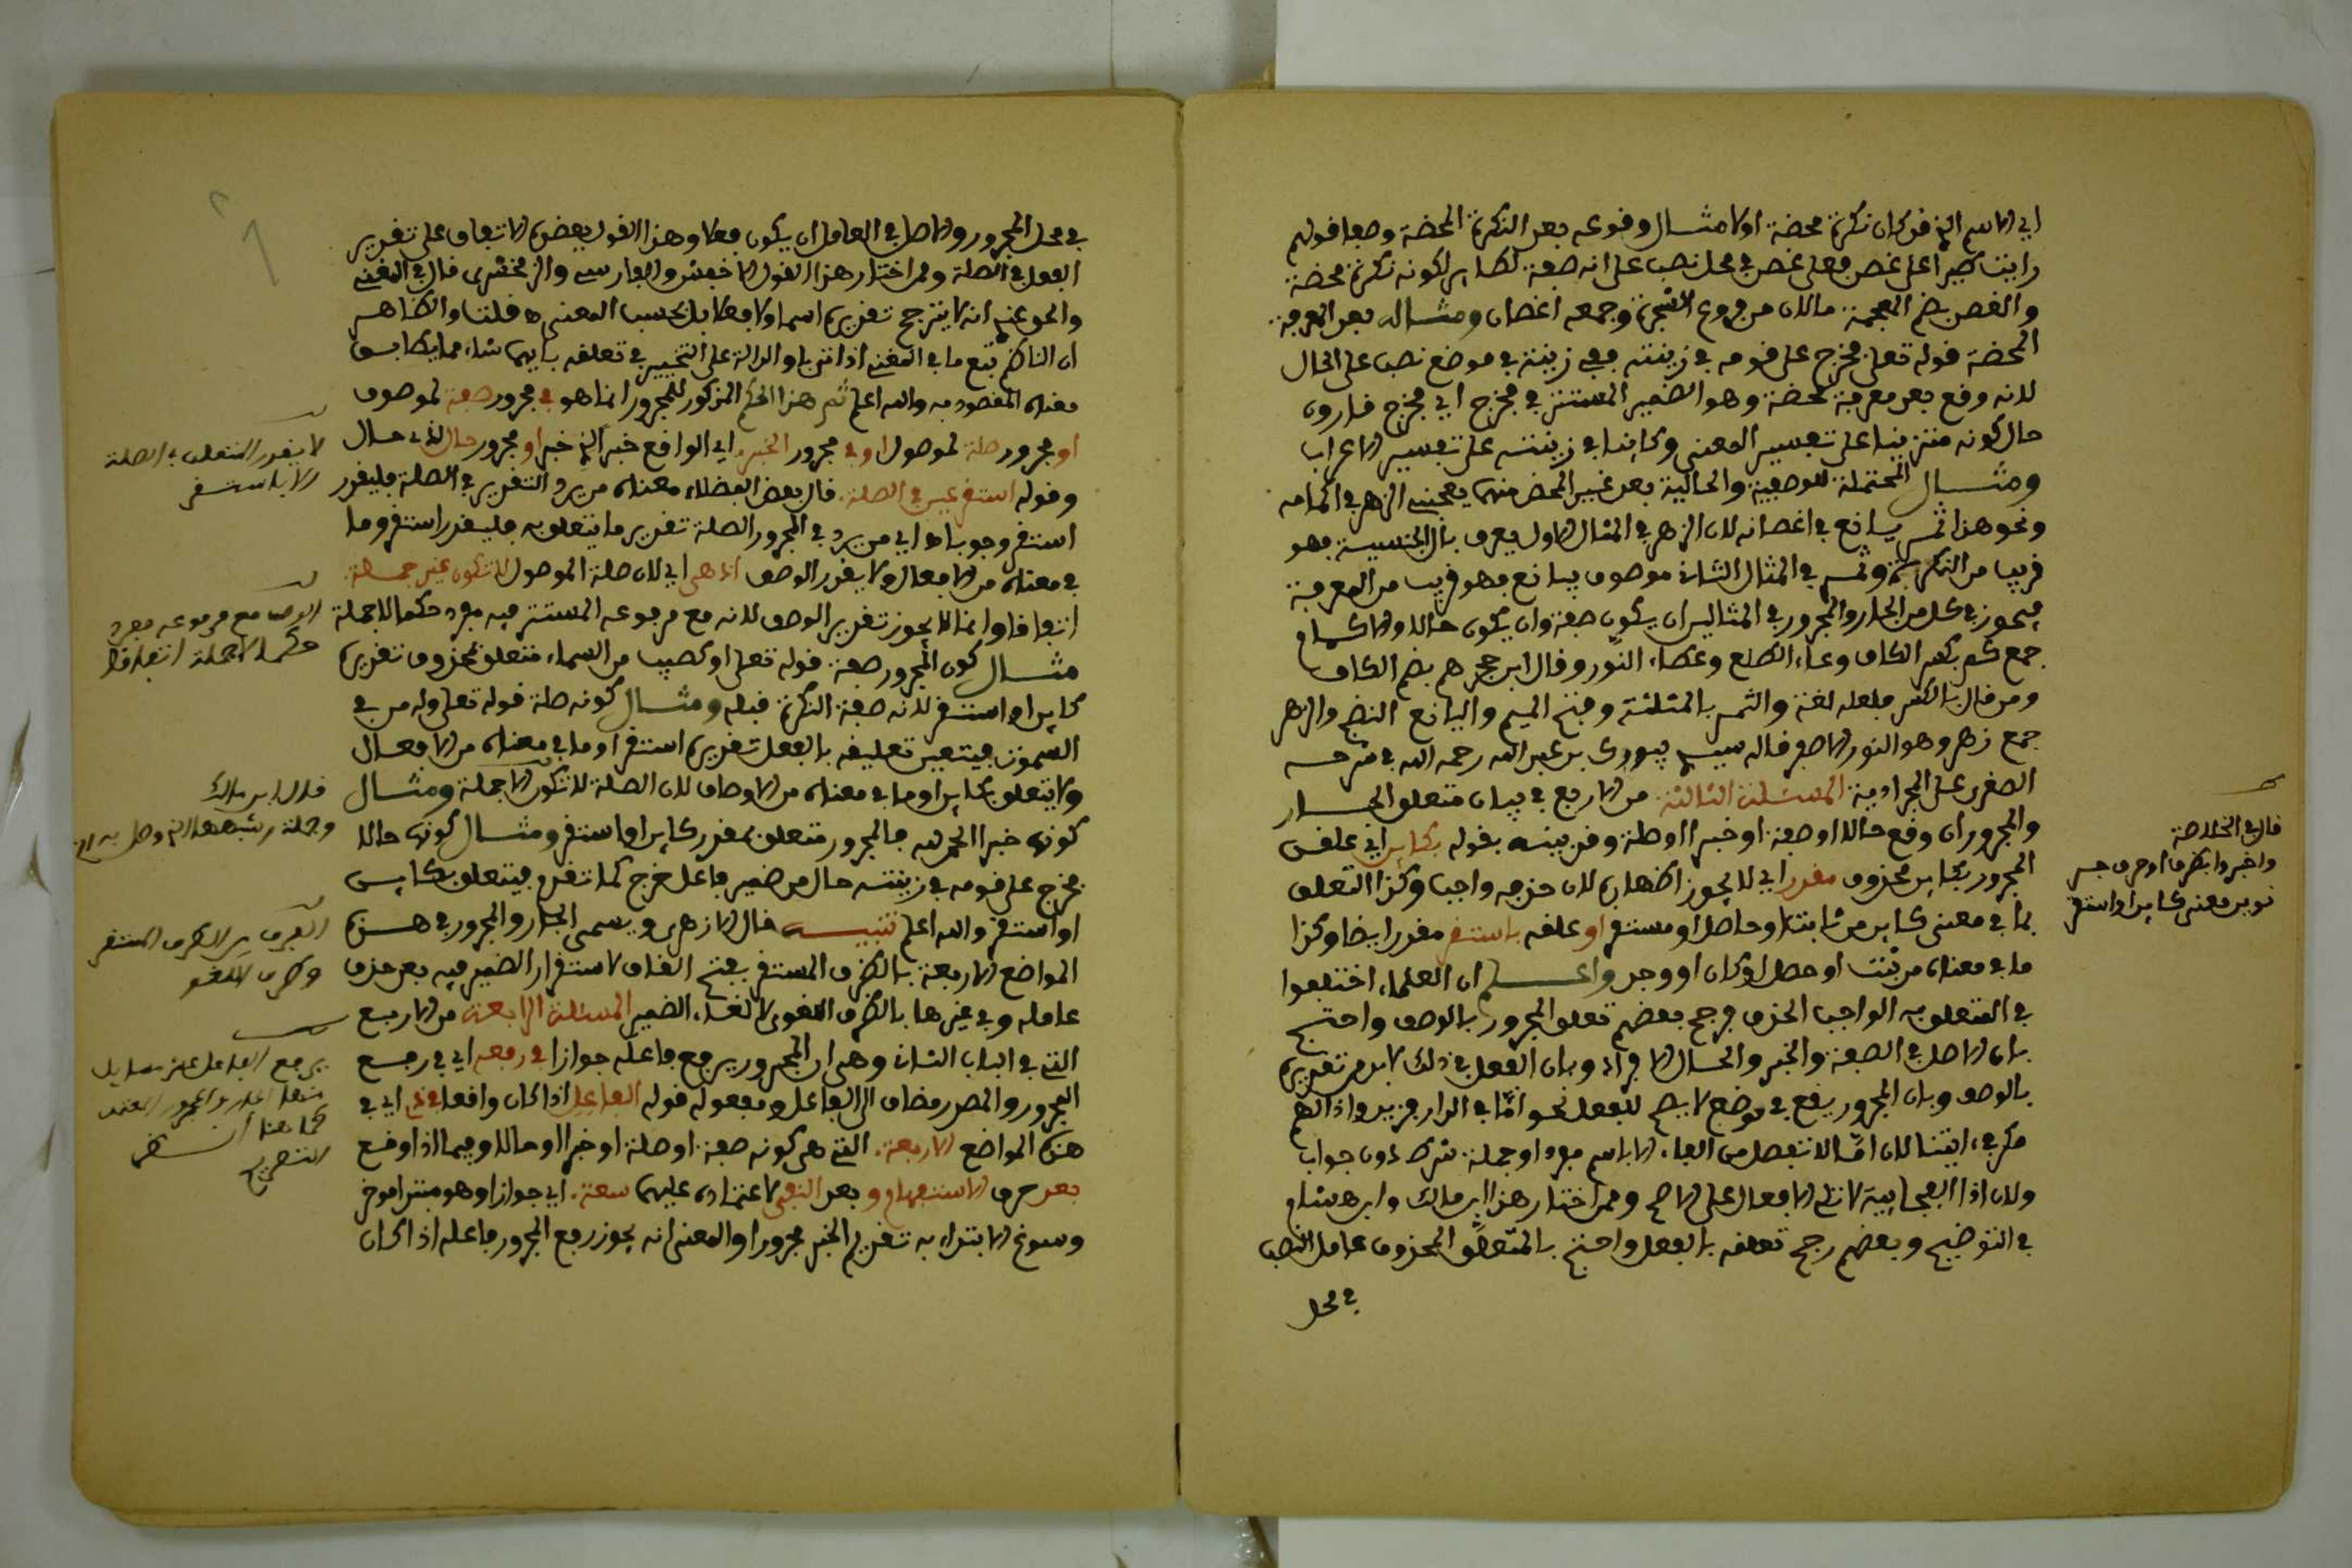 اي الاسم الذي قد كان نكرة محضة اولا مثال وقوعه بعد النكرة المحضة وصفا قولهم
رايت طيرا على غصن فعلى غصن في محل نصب على انه صفة لطاير لكونه نكرة محضة
والغصن بضم المعجمة مالان من فروع الشجرة وجمعه اغصان ومثاله بعد المعرفة
المحضة قوله تعلى فخرج على قومه في زينته ففي زينته في موضع نصب على الحال
لانه وقع بعد معرفة محضة وهو الضمير المستتر في فخرج اي فخرج قارون
حال كونه متزينا على تفسير المعنى وكاينا في زينته على تفسير الاعراب
ومثال المحتملة للوصفية والحالية بعد غير المحض منهما يعجبني الزهر في اكمامه
ونحو هذا ثمر يانع في اغصانه لان الزهر في المثال الاول معرف بال الجنسية فهو
قريب من النكرة وثمر في المثال الثاني موصوف بيانع فهو قريب من المعرفة
فيجوز في كل من الجار والمجرور في المثالين ان يكون صفة وان يكون حالا والاكمام
جمع كم بكسر الكاف وعاء الطلع وغطاء النور وقال ابن حجر هم بضم الكاف
ومن قال بالكسر فلعله لغة والثمر بالمثلثة وفتح الميم واليانع النضج والزهر
جمع زهر وهو النور الاصفر قاله سيدي بن عبد الله رحمه الله في شرحه
الصغرى على الجرادية المسئلة الثالثة من الاربع في بيان متعلق الجار
والمجرور ان وقع حالا او صفة او خبرا او صلة وقد بينه بقوله بكاين اي علقن
المجرور بكاين محذوف مقدرا اي لا يجوز اظهاره لان حذفه واجب وكذا التعلق
بما في معنى كاين من ثابت او حاصل او مستقر او علقه باستقر مقدرا ايضا وكذا
ما في معناه من ثبت او حصل او كان او وجد واعلم ان العلماء اختلفوا
في المتعلق به الواجب الحذف فرجح بعضهم تعلق المجرور بالوصف واحتج
بان الاصل في الصفة والخبر والحال الافراد وبان الفعل في ذلك لابد من تقديره
بالوصف وبان المجرور يقع في موضع لا يصح للفعل نحو اما في الدار فزيد واذا لهم
مكر في اياتنا لان اما لا تفصل من الفاء الا باسم مفرد او جملة شرط دون جواب
ولان اذا الفجايية لا تلي الافعال على الاصح وممن اختار هذا ابن مالك وابن هشام
في التوضيح وبعضهم رجح تعلقه بالفعل واحتج بالمتعلق المحذوف عامل النصب
في محل
قال في الخلاصة
واخبروا بظرف او حرف جر
ناوين معنى كاين او استقر
في محل المجرور والاصل في العامل ان يكون فعلا وهذا القول يعضده الاتفاق على تقدير
الفعل في الصلة وممن اختار هذا القول الاخفش والفارسي والزمخشري قال في المغني
والحق عندي انه لا يترجح تقديره اسما ولا فعلا بل بحسب المعنى ه قلت والظاهر
ان الناظم تبع ما في المغني اذا اتى باو الدالة على التخيير في تعلقه بايهما شاء مما يطابق
معناه المقصود به والله اعلم ثم هذا الحكم المذكور للمجرور انما هو في مجرور صفة لموصوف
او مجرور صلة لموصول او في مجرور الخبر اي الواقع خبرا لذي خبر او مجرور حال لذي حال
وقوله استقر عين في الصلة قال بعض الفضلاء معناه من يرد التقدير في الصلة فليقدر
استقر وجوبا ه اي من يرد في المجرور الصلة تقدير ما يتعلق به فليقدر استقر وما
في معناه من الافعال ولا يقدر الوصف اذ هي اي لان صلة الموصول لا تكون غير جملة
اتفاقا وانما لا يجوز تقدير الوصف لانه مع مرفوعه المستتر فيه مفرد حكما لا جملة
مثال كون المجرور صفة قوله تعلى او كصيب من السماء متعلق بمحذوف تقديره
كاين او استقر لانه صفة النكرة قبله ومثال كونه صلة قوله تعلى وله من في
السموت فيتعين تعليقه بالفعل تقديره استقر او ما في معناه من الافعال
ولا يتعلق بكاين او ما في معناه من الاوصاف لان الصلة لا تكون الا جملة ومثال
كونه خبرا الحمد لله فالمجرور متعلق بمقدر كاين او استقر ومثال كونه حالا
فخرج على قومه في زينته حال من ضمير فاعل خرج كما تقدم فيتعلق بكاين
او استقر والله اعلم تنبيه قال الازهري ويسمى الجار والمجرور في هذه
المواضع الاربعة بالظرف المستقر بفتح القاف لاستقرار الضمير فيه بعد حذف
عامله وفي غيرها بالظرف اللغو لالغاء الضمير المسئلة الرابعة من الاربع
التي في الباب الثاني وهي ان المجرور يرفع فاعله جوازا في رفعه اي في رفع
المجرور والمصدر مضاف الى الفاعل ومفعوله قوله الفاعل اذا كان واقعا في ذي اي في
هذه المواضع الاربعة التي هي كونه صفة او صلة او خبرا او حالا وفيما اذا وقع
بعد حرف الاستفهام و بعد النفي لاعتماده عليهما سعة اي جوازا وهو مبتدا موخر
وسوغ الابتداء به تقديم الخبر مجرورا والمعنى انه يجوز رفع المجرور فاعله اذا كان
لا يقدر المتعلق في الصلة
الا باستقر
الوصف مع مرفوعه مفرد
حكما لا جملة اتفاقا
قال ابن مالك
وجملة او شبهها الذي وصل به
الفرق بين الظرف المستقر
وظرف اللغو